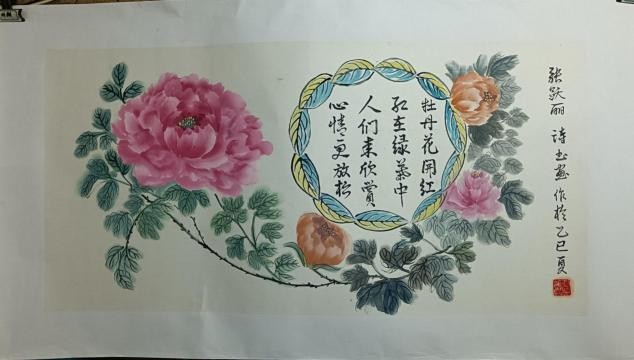 牡丹花开红
红在绿叶中
人们来欣赏
心情更放松
张跃丽 诗书画 作於乙巳夏